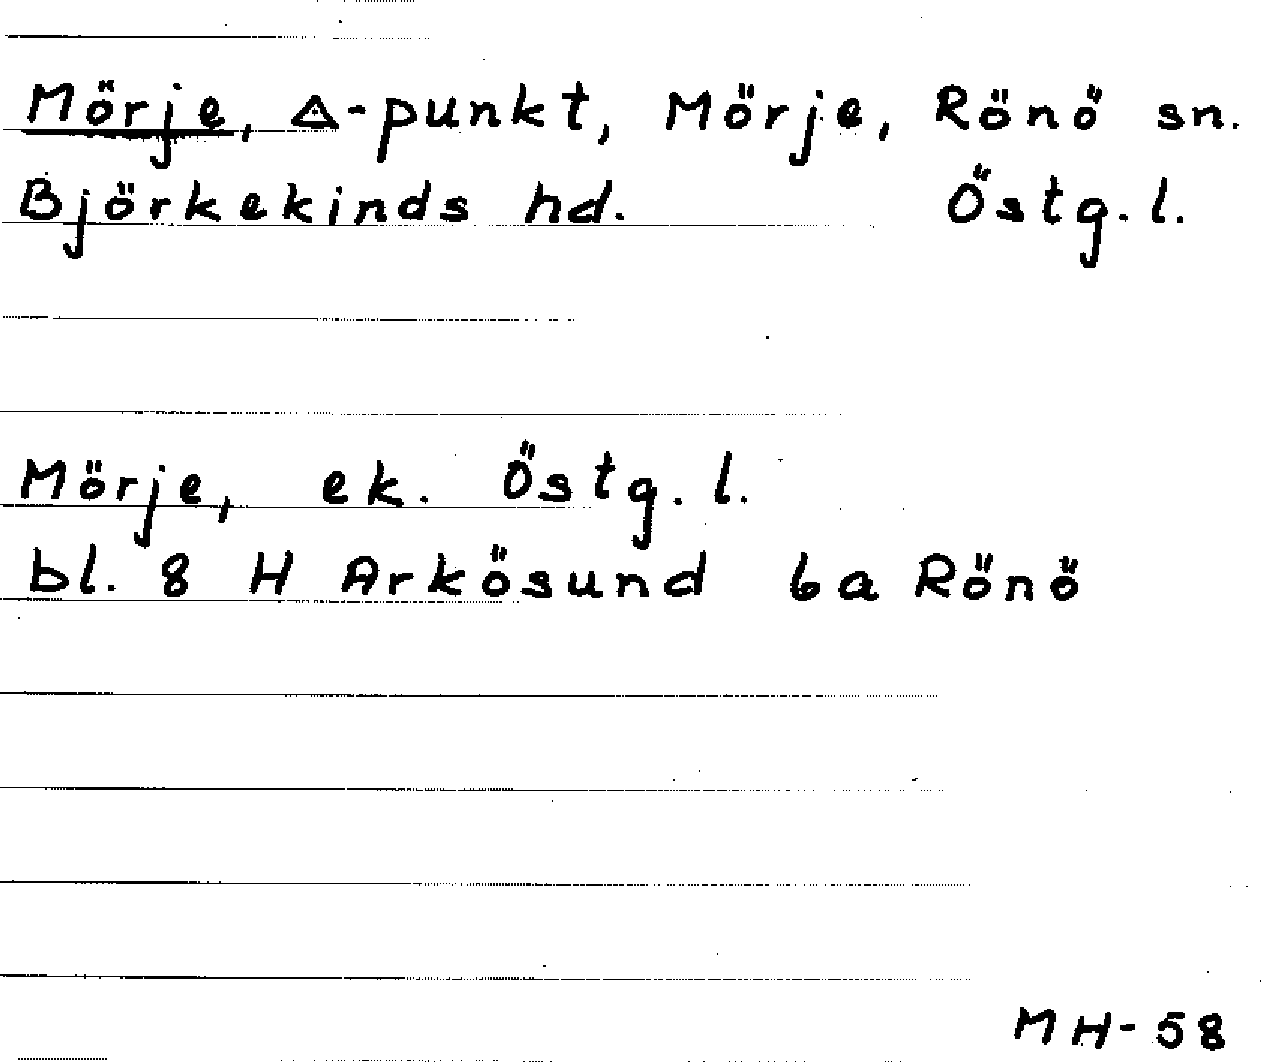 Mörje, Δ-punkt, Mörje, Rönö sn.
Björkekinds hd. Östg. l.
Mörje, ek. Östg. l.
bl. 8 H Arkösund 6a Rönö
MH-58